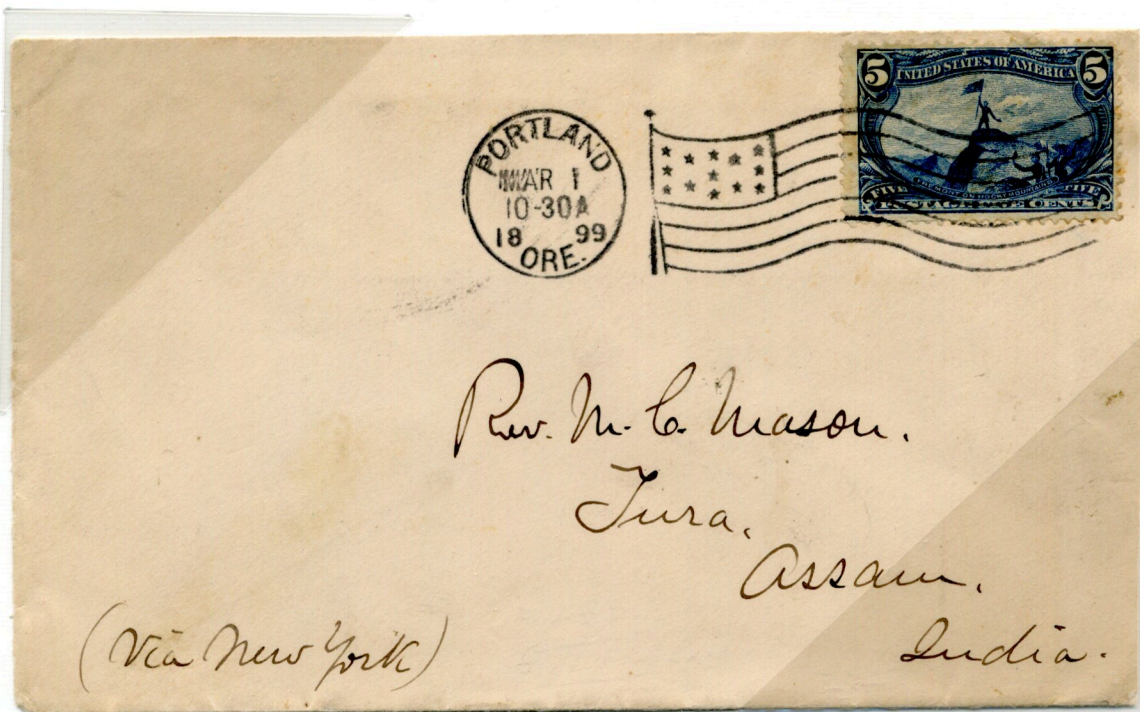 5 UNITED STATES OF AMERICA 5
FIVE FIVE
POSTAGE CENTS
PORTLAND
MAR 1
10-30A
18 99
ORE.
Rev. M. C. Mason.
Tura,
Assam.
India.
(Via New York)